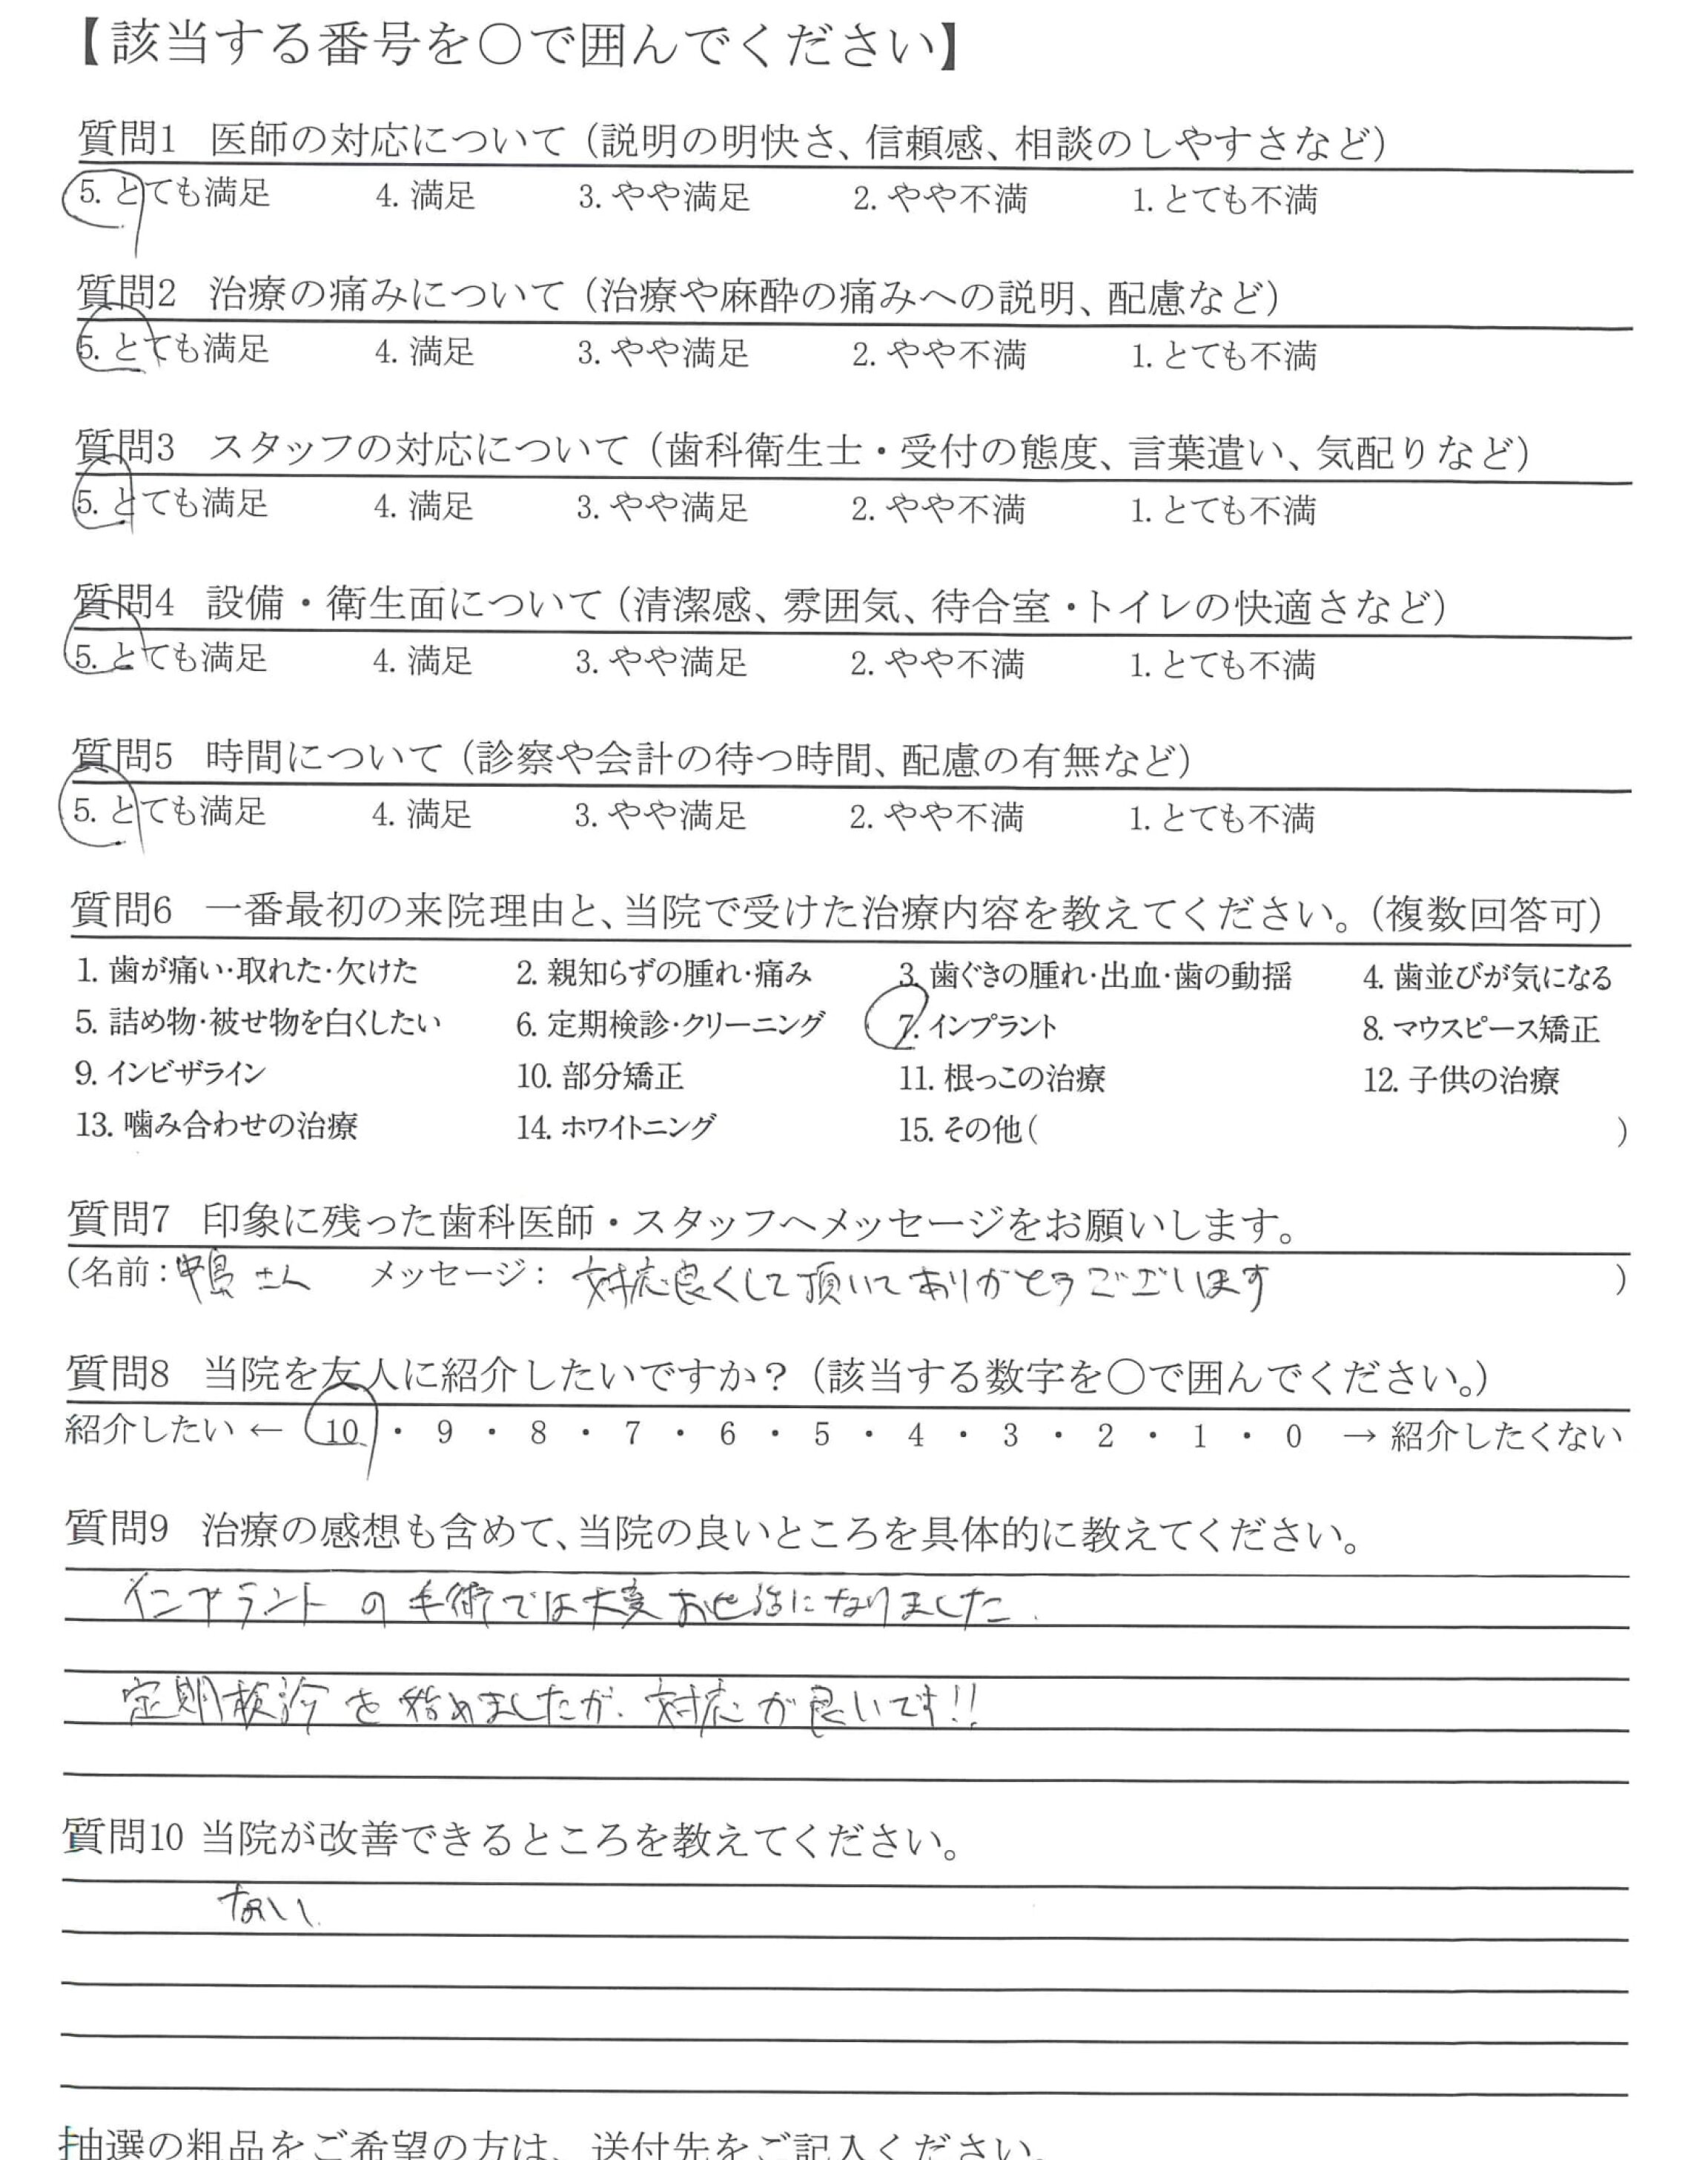 【該当する番号を○で囲んでください】
質問1 医師の対応について（説明の明快さ、信頼感、相談のしやすさなど）
5. とても満足 4. 満足 3. やや満足 2. やや不満 1. とても不満
質問2 治療の痛みについて（治療や麻酔の痛みへの説明、配慮など）
5. とても満足 4. 満足 3. やや満足 2. やや不満 1. とても不満
質問3 スタッフの対応について（歯科衛生士・受付の態度、言葉遣い、気配りなど）
5. とても満足 4. 満足 3. やや満足 2. やや不満 1. とても不満
質問4 設備・衛生面について（清潔感、雰囲気、待合室・トイレの快適さなど）
5. とても満足 4. 満足 3. やや満足 2. やや不満 1. とても不満
質問5 時間について（診察や会計の待つ時間、配慮の有無など）
5. とても満足 4. 満足 3. やや満足 2. やや不満 1. とても不満
質問6 一番最初の来院理由と、当院で受けた治療内容を教えてください。（複数回答可）
1. 歯が痛い・取れた・欠けた 2. 親知らずの腫れ・痛み 3. 歯ぐきの腫れ・出血・歯の動揺 4. 歯並びが気になる
5. 詰め物・被せ物を白くしたい 6. 定期検診・クリーニング 7. インプラント 8. マウスピース矯正
9. インビザライン 10. 部分矯正 11. 根っこの治療 12. 子供の治療
13. 噛み合わせの治療 14. ホワイトニング 15. その他（ ）
質問7 印象に残った歯科医師・スタッフへメッセージをお願いします。
（名前： メッセージ： 対応良くして頂いてありがとうございます ）
質問8 当院を友人に紹介したいですか？（該当する数字を○で囲んでください。）
紹介したい ← 10 ・ 9 ・ 8 ・ 7 ・ 6 ・ 5 ・ 4 ・ 3 ・ 2 ・ 1 ・ 0 → 紹介したくない
質問9 治療の感想も含めて、当院の良いところを具体的に教えてください。
インプラントの手術では大変お世話になりました.
定期検診を始めましたが、対応が良いです!!
質問10 当院が改善できるところを教えてください。
ない.
抽選の粗品をご希望の方は、送付先をご記入ください。